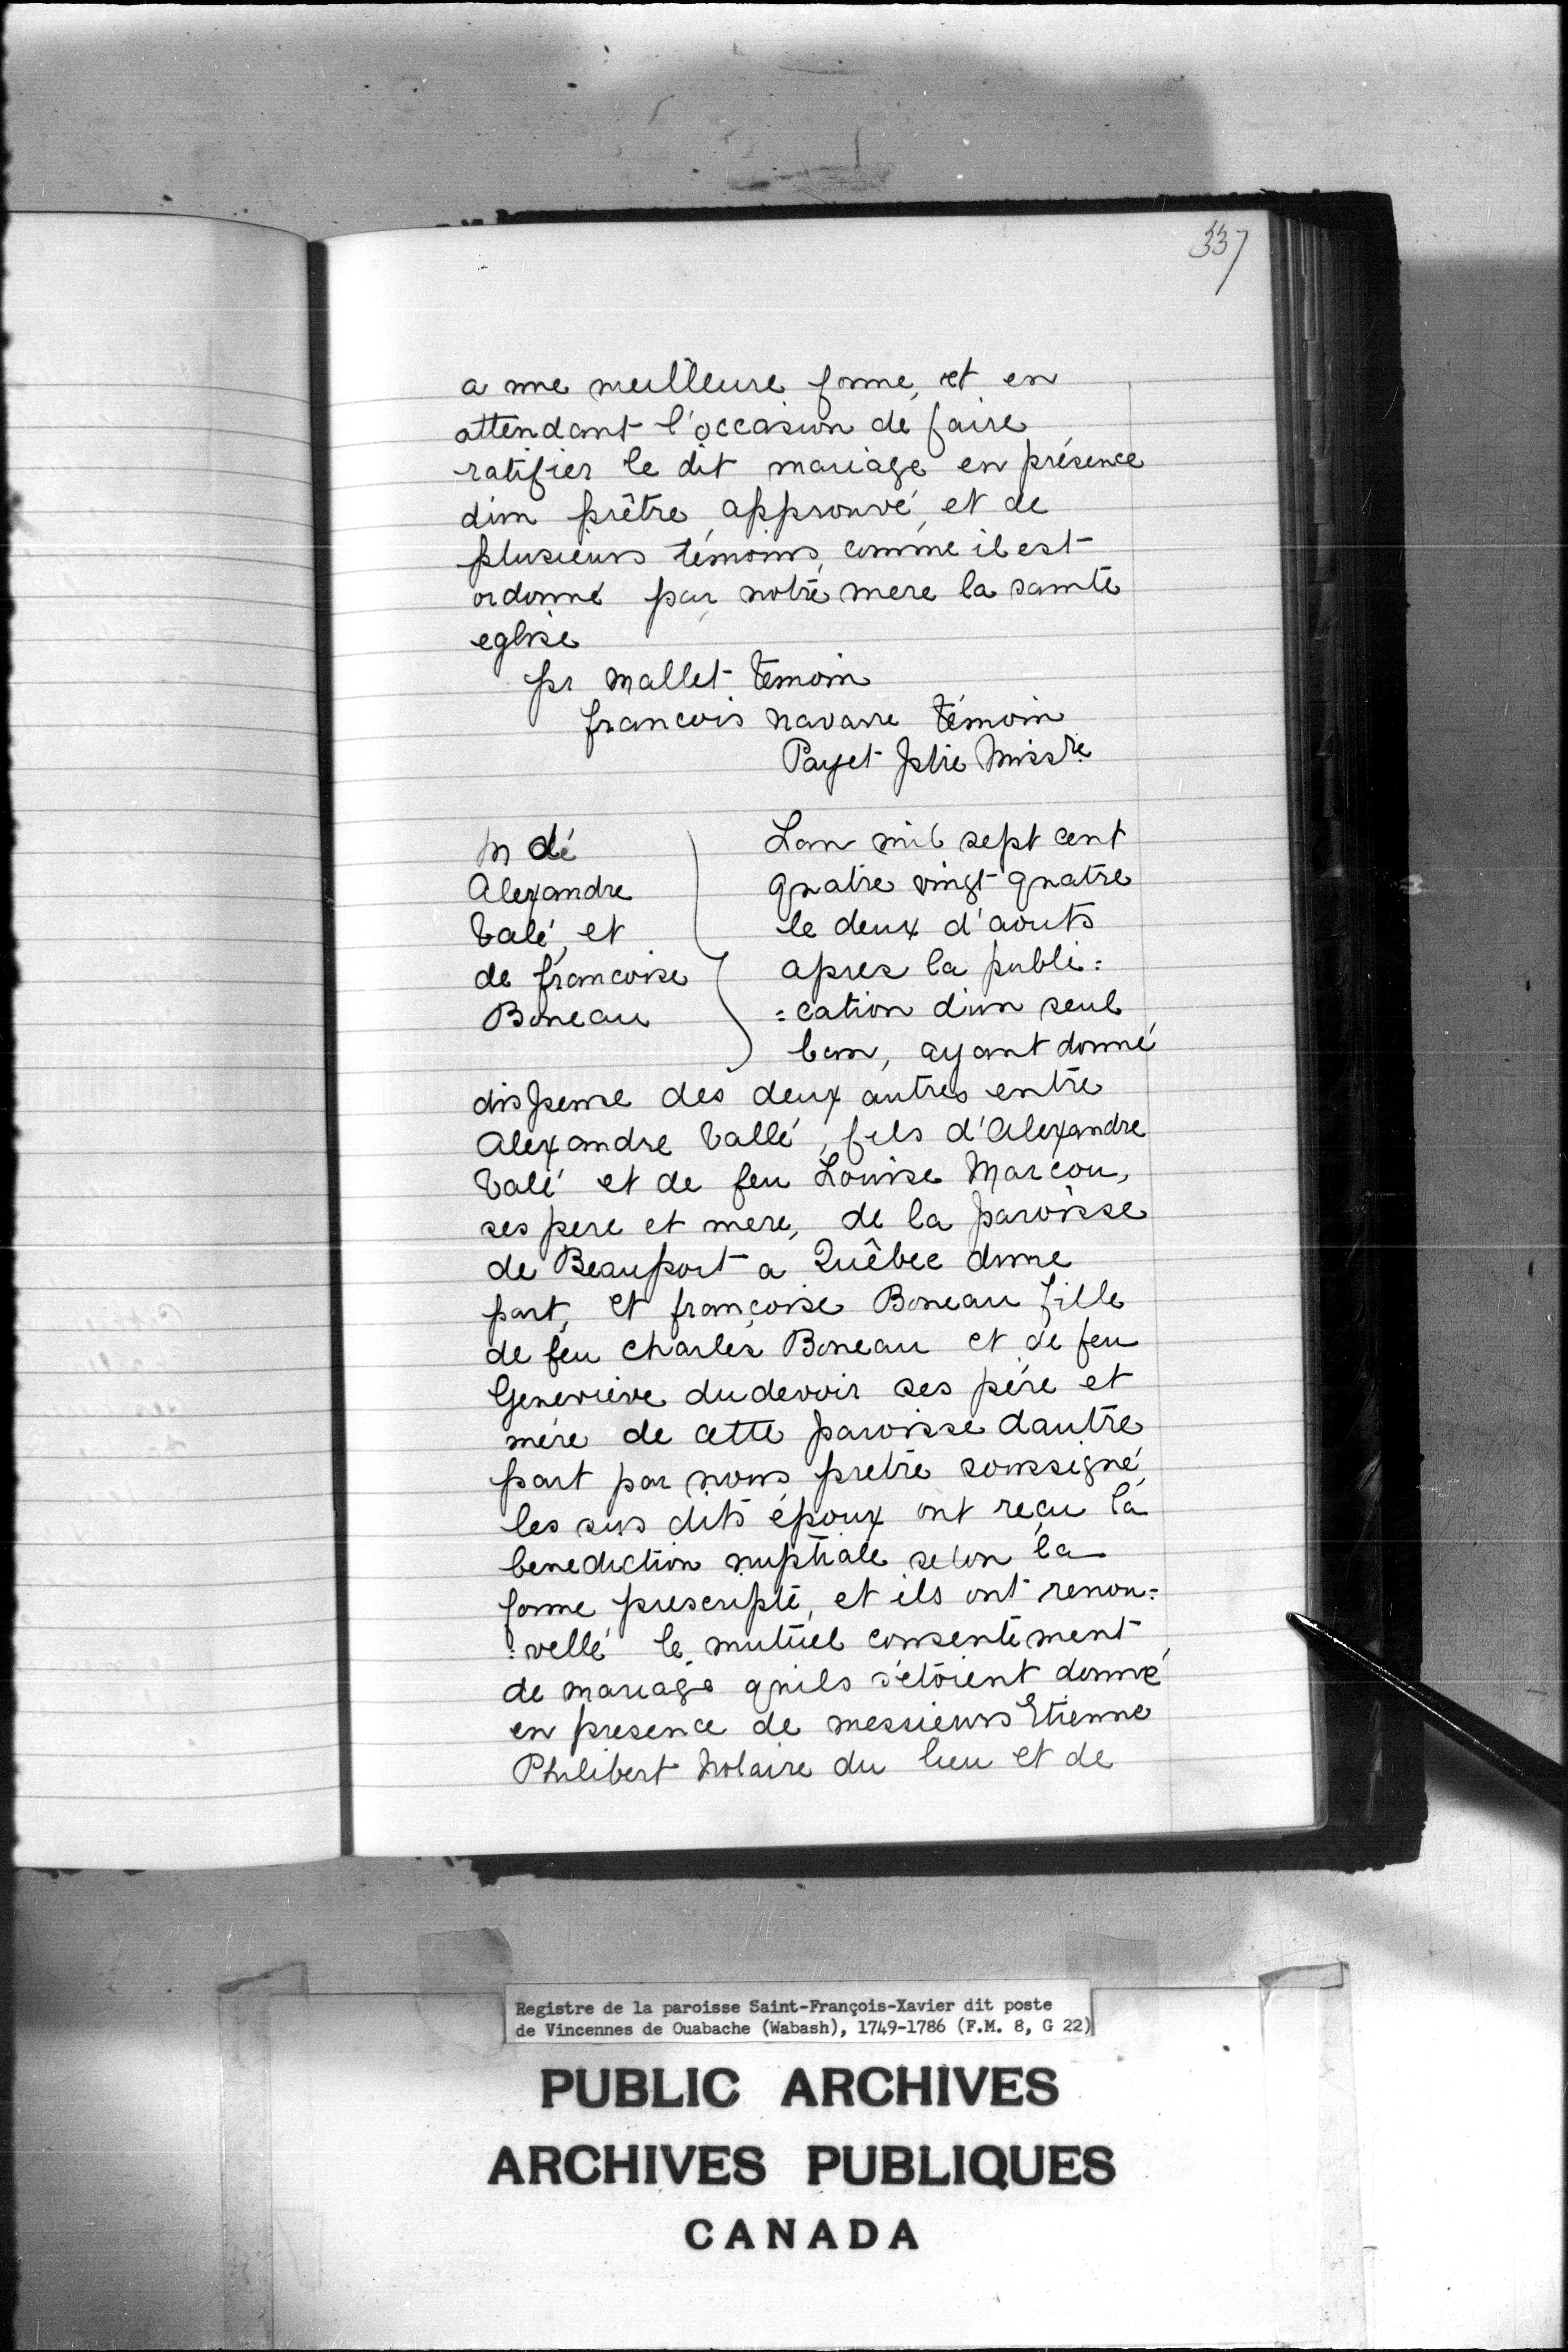 337
a une meilleure forme, et en
attendant l'occasion de faire
ratifier le dit mariage en présence
d'un prêtre approuvé, et de
plusieurs témoins, comme il est
ordonné par notre mere la sainte
eglise
pr Mallet témoin
francois navarre témoin
Payet Ptre Missre
M de
Alexandre
Valé, et
de francoise
Boneau
Lan mil sept cent
quatre vingt quatre
le deux d'aouts
apres la publi=
=cation d'un seul
ban, ayant donné
dispense des deux autres entre
Alexandre Vallé, fils d'Alexandre
Valé et de feu Louise Marcou,
ses pere et mere, de la paroisse
de Beauport a Quêbec dune
part, et françoise Boneau fille
de feu Charles Boneau et de feu
Genevieve dudevoir ses pére et
mére de cette paroisse dautre
part par nous pretre soussigné
les sus dits époux ont reçu la
benediction nuptiale selon la
forme prescripte, et ils ont renou=
=vellé le mutuel consentement
de mariage quils s'etoient donné
en presence de messieurs Etienne
Philibert Notaire du lieu et de
Registre de la paroisse Saint-François-Xavier dit poste
de Vincennes de Ouabache (Wabash), 1749-1786 (F.M. 8, G 22)
PUBLIC ARCHIVES
ARCHIVES PUBLIQUES
CANADA